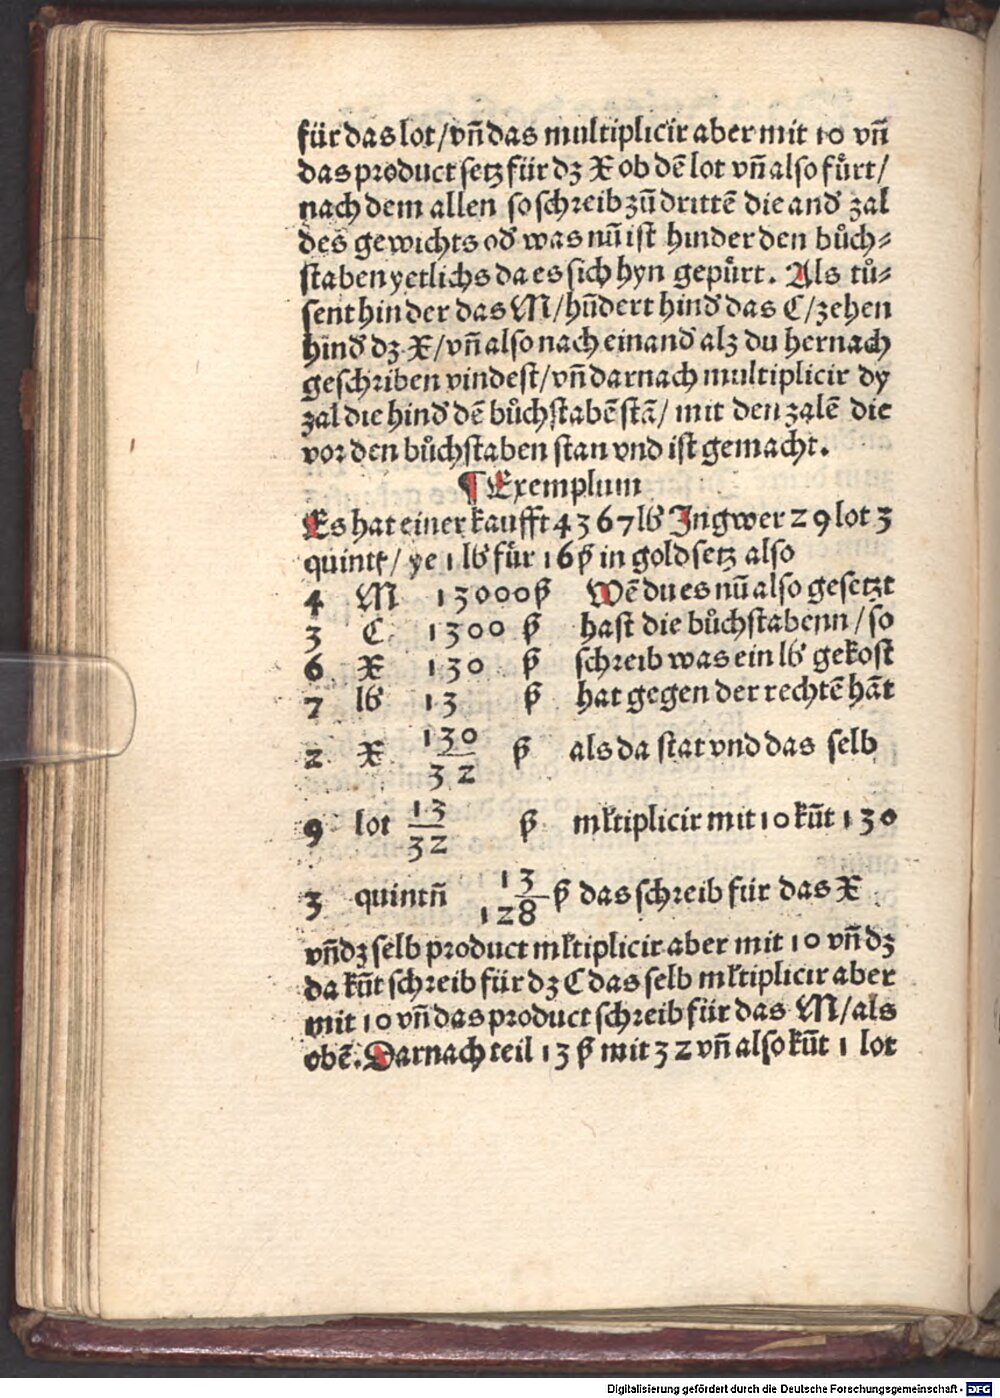 für das lot/vn̄ das multiplicir aber mit 10 vn̄
das product setz für dz X ob dē lot vn̄ also fu̇rt/
nach dem allen so schreib zū drittē die and̛ zal
des gewichts od̛ was nū ist hinder den bůch⸗
staben yetlichs da es sich hyn gepu̇rt. Als tů⸗
sent hinder das M/hūdert hind̛ das C/zehen
hind̛ dz X/vn̄ also nach einand̛ alz du hernach
geschriben vindest/vn̄ darnach multiplicir dy
zal die hind̛ dē bůchstabē stā/ mit den zalē die
vor den bůchstaben stan vnd ist gemacht.
¶ Exemplum
Es hat einer kaufft 4367 lb Ingwer 29 lot 3
quintt/ ye 1 lb für 16 ß in gold setz also
4 M 13000 ß Wē du es nū also gesetzt
3 C 1300 ß hast die bůchstabenn/so
6 X 130 ß schreib was ein lb gekost
7 lb 13 ß hat gegen der rechtē hāt
2 X 130/32 ß als da stat vnd das selb
9 lot 13/32 ß mltiplicir mit 10 kūt 130
3 quintn̄ 13/128 ß das schreib für das X
vn̄ dz selb product mltiplicir aber mit 10 vn̄ dz
da kūt schreib für dz C das selb mltiplicir aber
mit 10 vn̄ das product schreib für das M/als
obē. Darnach teil 13 ß mit 32 vn̄ also kūt 1 lot
Digitalisierung gefördert durch die Deutsche Forschungsgemeinschaft - DFG